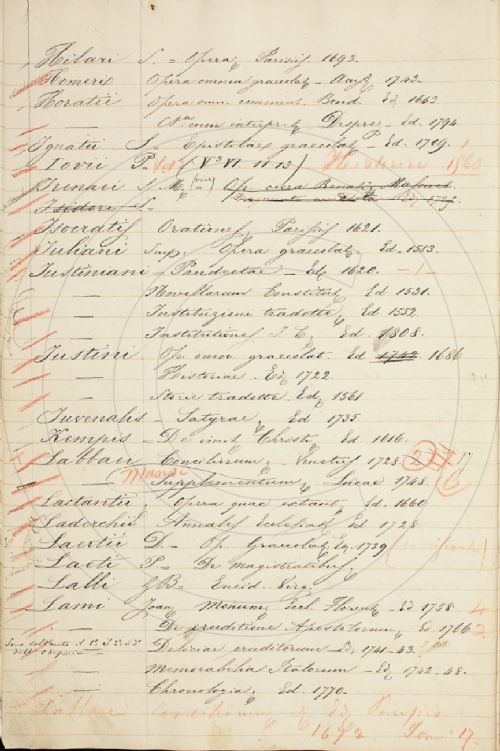 Hilari S. - Opera, Parisiis 1693.
Homerio Opera omnia graecolat. - 1743.
Horatii Opera omn. comment. Bond. Ed. 1663
— cum interpret. Desprez - Ed. 1794
Ignatii S. Epistolae graecolat. - Ed. 1709. 1
Iovii P. 1563
Irenaei S. M.
Isidori S.
Isocratis Orationes, Parisiis 1621.
Juliani Imp. Opera graecolat. Ed. 1583.
Justiniani - Pandectae - Ed. 1620. - 1 -
— Novellarum Constitut. Ed. 1531.
— Instituzioni tradotte, Ed. 1552.
— Institutiones Ed. 1808.
Justini Op. omn. graecolat. Ed. 1742 1686
— Historiae. Ed. 1722
— Storie tradotte. Ed. 1561
Juvenalis - Satyrae, Ed. 1735.
Kempis - De imit. Christi, Ed. 1616.
Labbaei Conciliorum, - Venetiis 1728
Mansi Supplementum, Lucae 1748. 6
Lactantii Opera quae extant, Ed. 1660
Laderchii Annales Ecclesiast. Ed. 1728
Laertii D. - Op. Graecolat. Ed. 1739
Laeti P. - De magistratibus,
Lalli G.B. Eneid. Virg.
Lami Joan. Monum. Eccl. Florent. - Ed. 1758. 4
— De eruditione Apostolorum, Ed. 1766 2
Deliciae eruditorum Ed. 1741-43.
— Memorabilia Italorum - Ed. 1742-48.
— Chronologia, Ed. 1770.
Parisiis
1672 Tom. 17.